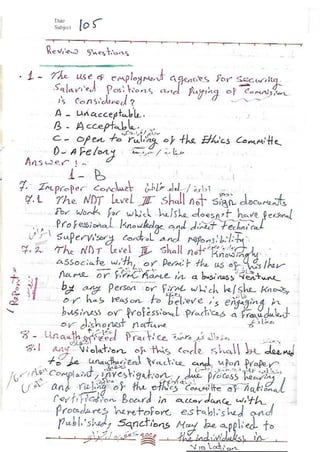 Date
Subject 105
Review questions
1 - The use of employment agencies for securing
Salaried Positions and Paying of Commission
is considered?
A - Unacceptable.
B - Acceptable.
C - open to ruling of the Ethics Committe
D - A felony
Answer :-
1 - B
7. Improper conduct
7.1 The NDT Level III Shall not Sign documents
for work for which he/she doesn't have personal
Professional knowledge and direct technical
Supervisory control and responsibility.
7.2 The NDT level III Shall not Knowingly
associate with, or Permit the us of his/her
name or firm name in a business venture
by any person or firm which he/she knows
or has reason to believe is engaging in
business or professional practices a fraudulent
or dishonest nature
8 - Unauthorized Practice
8.1 Any Violation of this code shall be deemed
to be unauthorized Practice and upon proper
complaint, investigation, due process hearing
and ruling of the ethics Committe of national
Certification Board in accordance with
Procedures heretofore established and
published, Sanctions May be applied to
the individuals in
violation